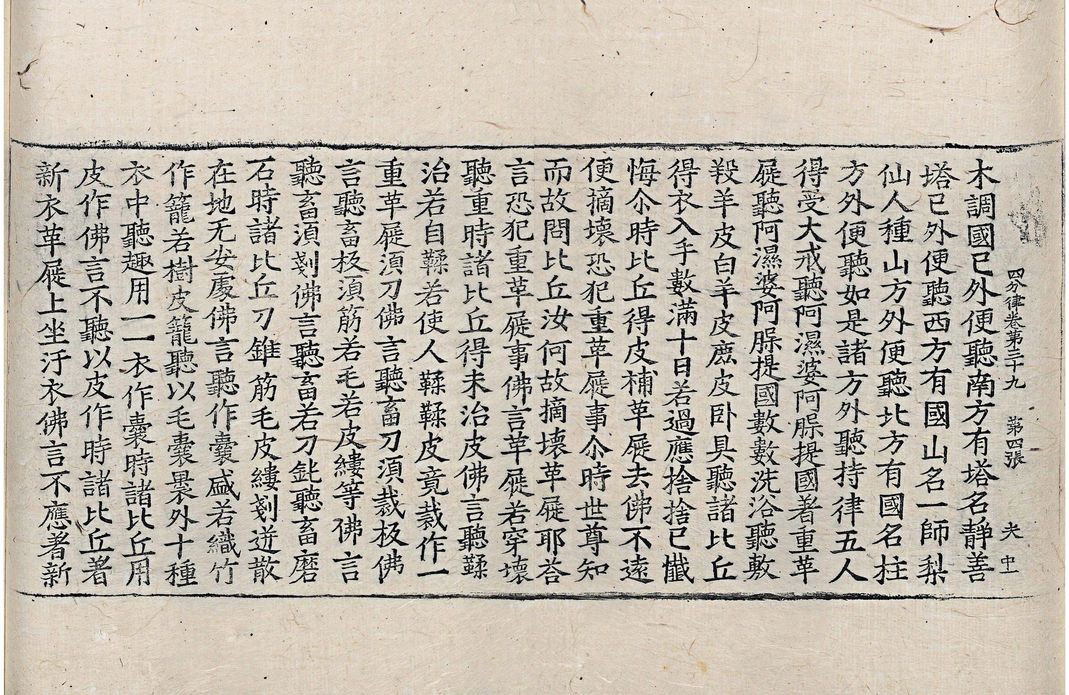 四分律卷第三十九　第四張　夫
木調國已外便聽南方有塔名靜善
塔已外便聽西方有國山名一師梨
仙人種山方外便聽北方有國名柱
方外便聽如是諸方外聽持律五人
得受大戒聽阿濕婆阿脲提國著重革
屣聽阿濕婆阿脲提國數數洗浴聽敷
羖羊皮白羊皮鹿皮卧具聽諸比丘
得衣入手數滿十日若過應捨捨已懺
悔尒時比丘得皮補革屣去佛不遠
便摘壞恐犯重革屣事尒時世尊知
而故問比丘汝何故摘壞革屣耶荅
言恐犯重革屣事佛言革屣若穿壞
聽重時諸比丘得未治皮佛言聽鞣
治若自鞣若使人鞣鞣皮竟裁作一
重革屣須刀佛言聽畜刀須裁板佛
言聽畜板須筋若毛若皮縷等佛言
聽畜須剗佛言聽畜若刀鈋聽畜磨
石時諸比丘刀錐筋毛皮縷剗迸散
在地无安處佛言聽作囊盛若織竹
作籠若樹皮籠聽以毛囊裹外十種
衣中聽趣用一一衣作囊時諸比丘用
皮作佛言不聽以皮作時諸比丘著
新衣革屣上坐汙衣佛言不應著新